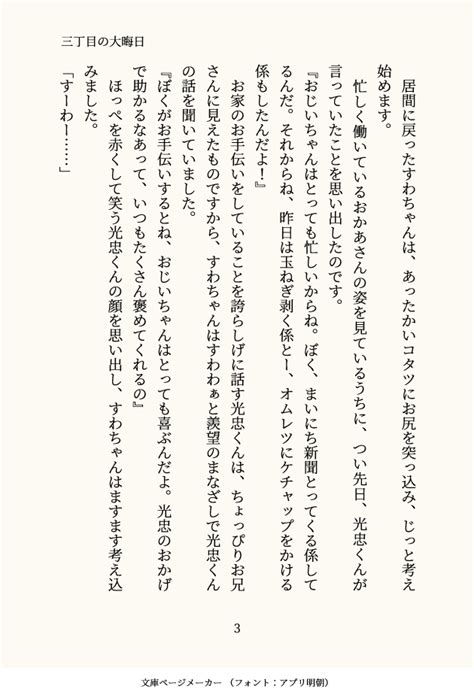 三丁目の大晦日
居間に戻ったすわちゃんは、あったかいコタツにお尻を突っ込み、じっと考え
始めます。
忙しく働いているおかあさんの姿を見ているうちに、つい先日、光忠くんが
言っていたことを思い出したのです。
『おじいちゃんはとっても忙しいからね。ぼく、まいにち新聞とってくる係して
るんだ。それからね、昨日は玉ねぎ剥く係とー、オムレツにケチャップをかける
係もしたんだよ！』
お家のお手伝いをしていることを誇らしげに話す光忠くんは、ちょっぴりお兄
さんに見えたものですから、すわちゃんはすわわぁと羨望のまなざしで光忠くん
の話を聞いていました。
『ぼくがお手伝いするとね、おじいちゃんはとっても喜ぶんだよ。光忠のおかげ
で助かるなあって、いつもたくさん褒めてくれるの』
ほっぺを赤くして笑う光忠くんの顔を思い出し、すわちゃんはますます考え込
みました。
「すーわー……」
3
文庫ページメーカー （フォント：アプリ明朝）